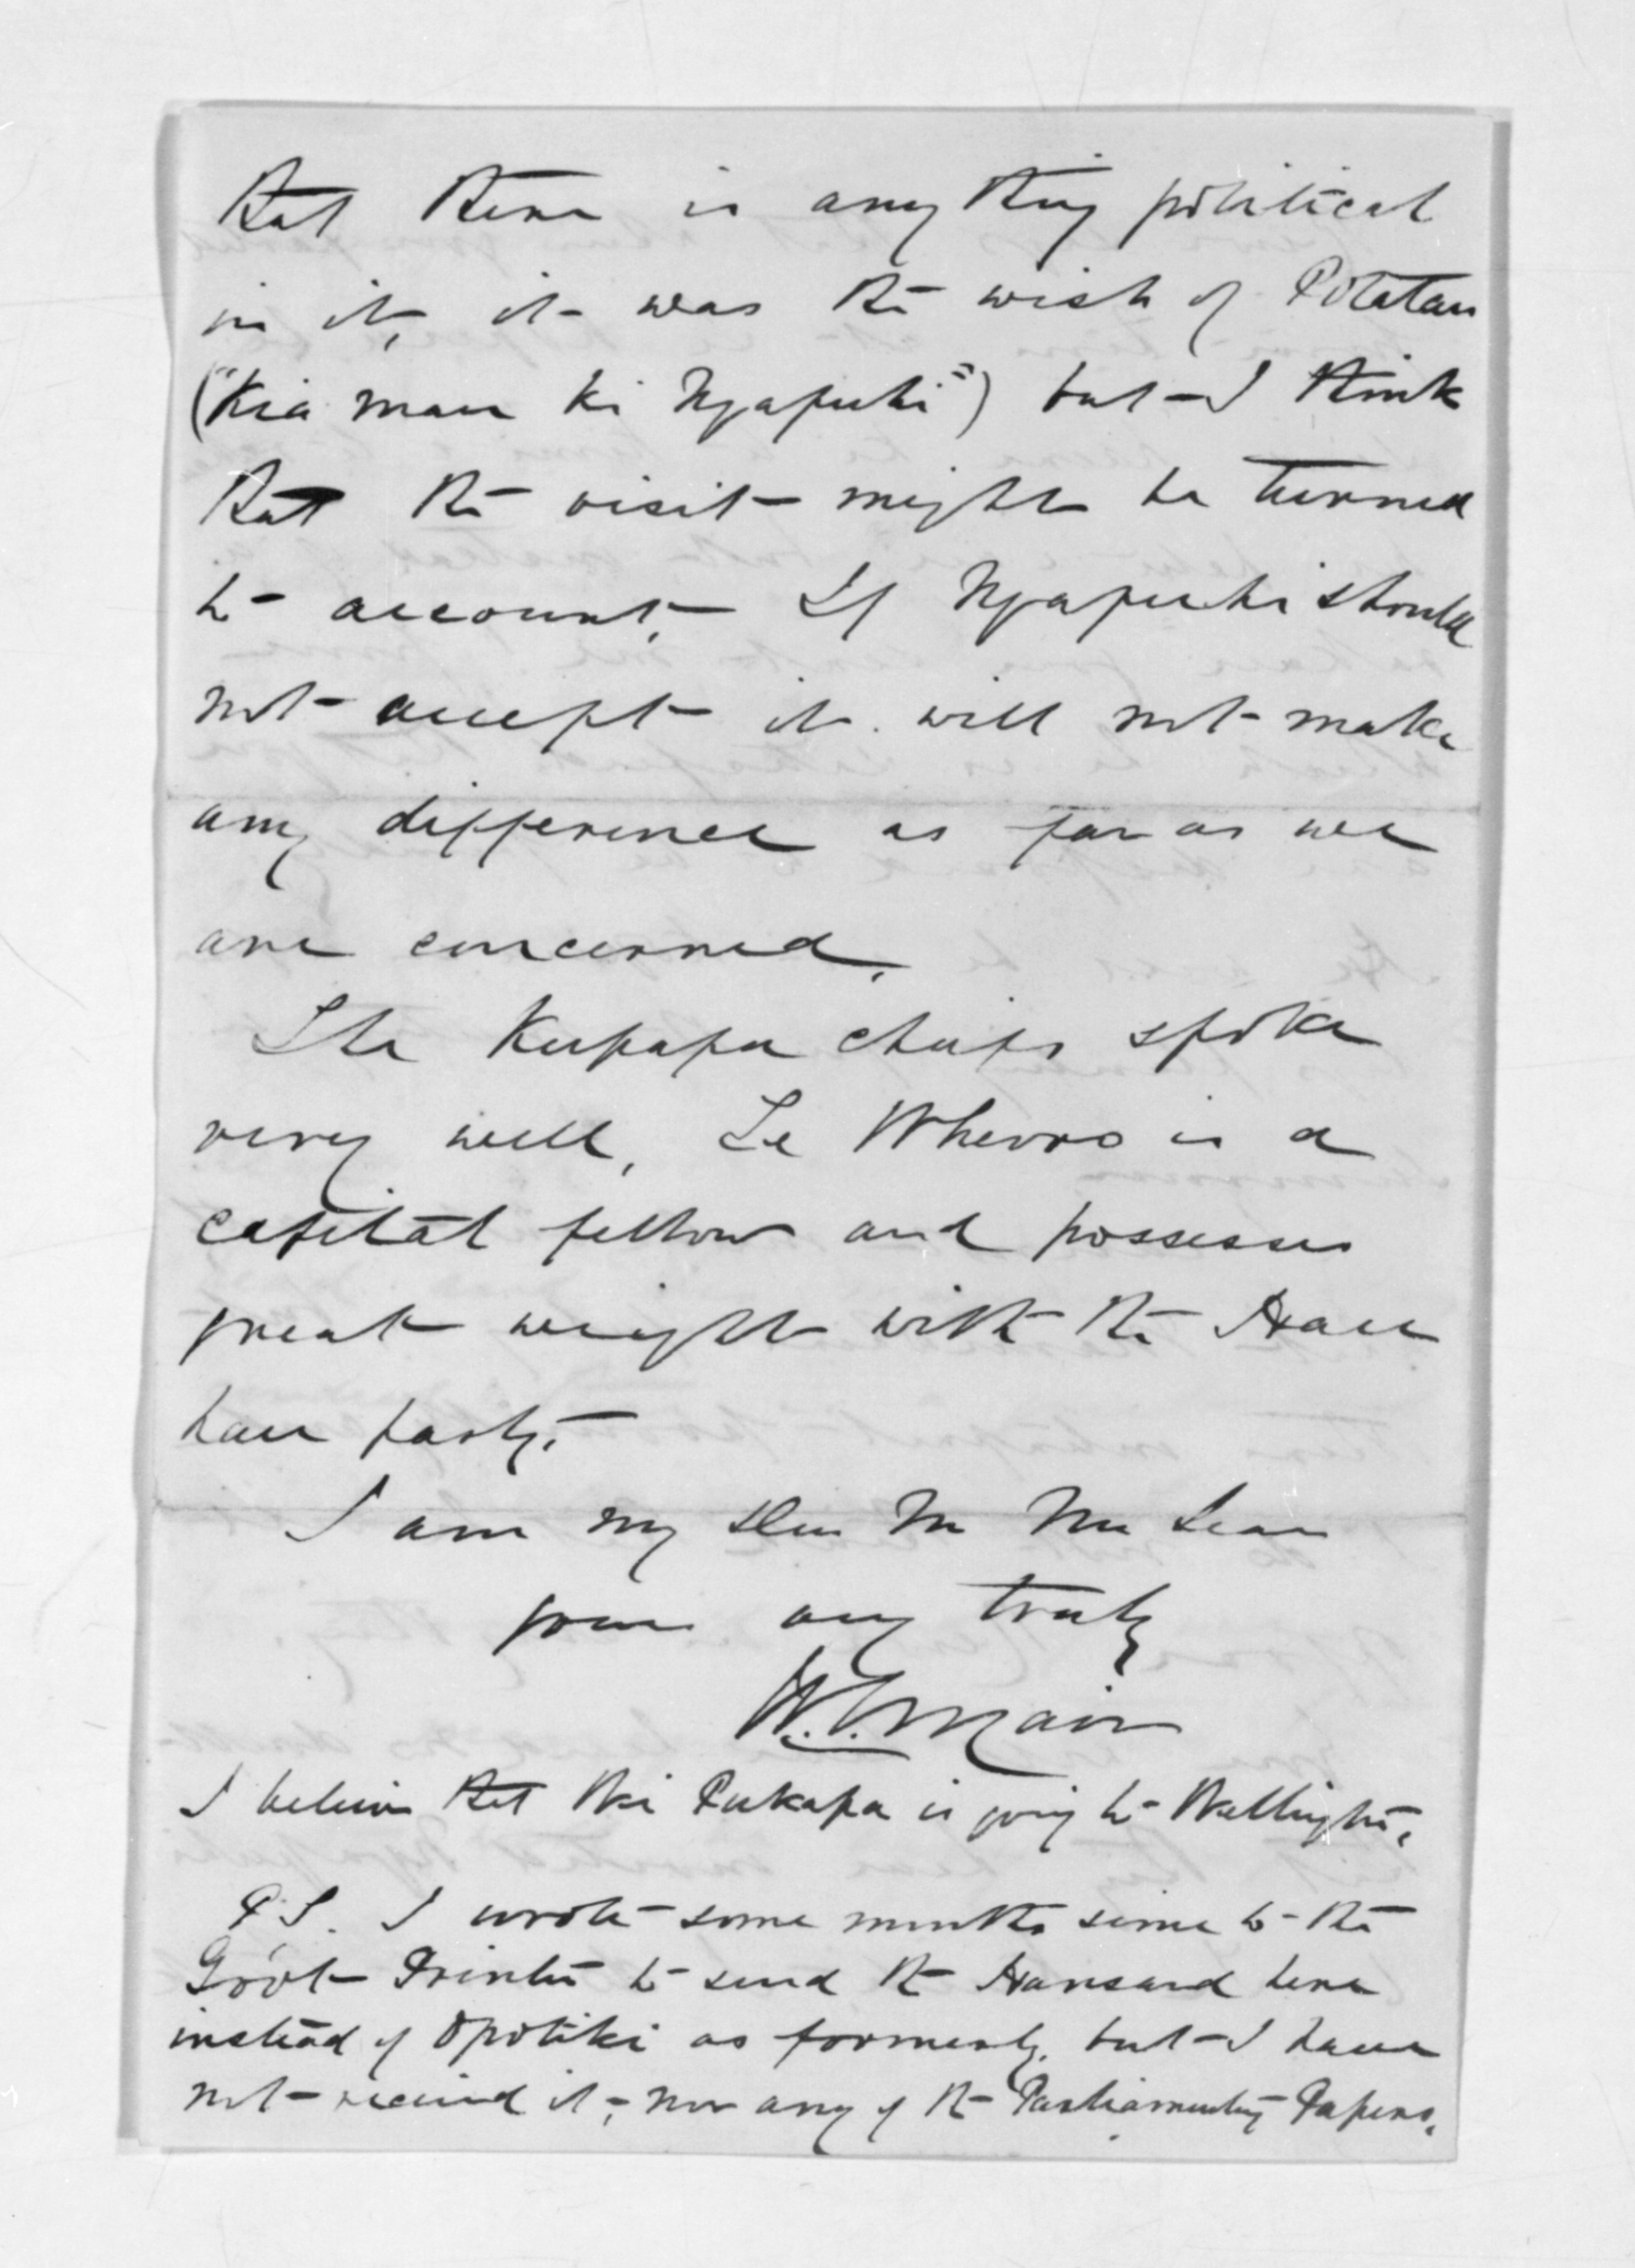 that there is any thing political
in it, it was the wish of Potatau
("Kia mau ki Ngapuhi") but I think
that the visit might be turned
to account. If Ngapuhi should
not accept it will not make
any difference as far as we
are concerned.
The Kupapa chiefs spoke
very well, Te Wheoro is a
capital fellow and possesses
great weight with the Hau
hau party.
I am my dear Mr McLean
yours very truly
W. G. Mair
I believe that Pukapa is going to Wellington.
P.S. I wrote some months since to the
Gov't Printer to send the Hansard here
instead of Opotiki as formerly, but I have
not received it, nor any of the Parliamentary Papers.